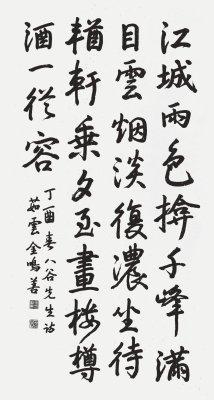 江城雨色揜千峰滿
目雲烟淡復濃坐待
輶軒乘夕至畫樓樽
酒一從容
丁酉春八谷先生詩
茹雲金鳴善